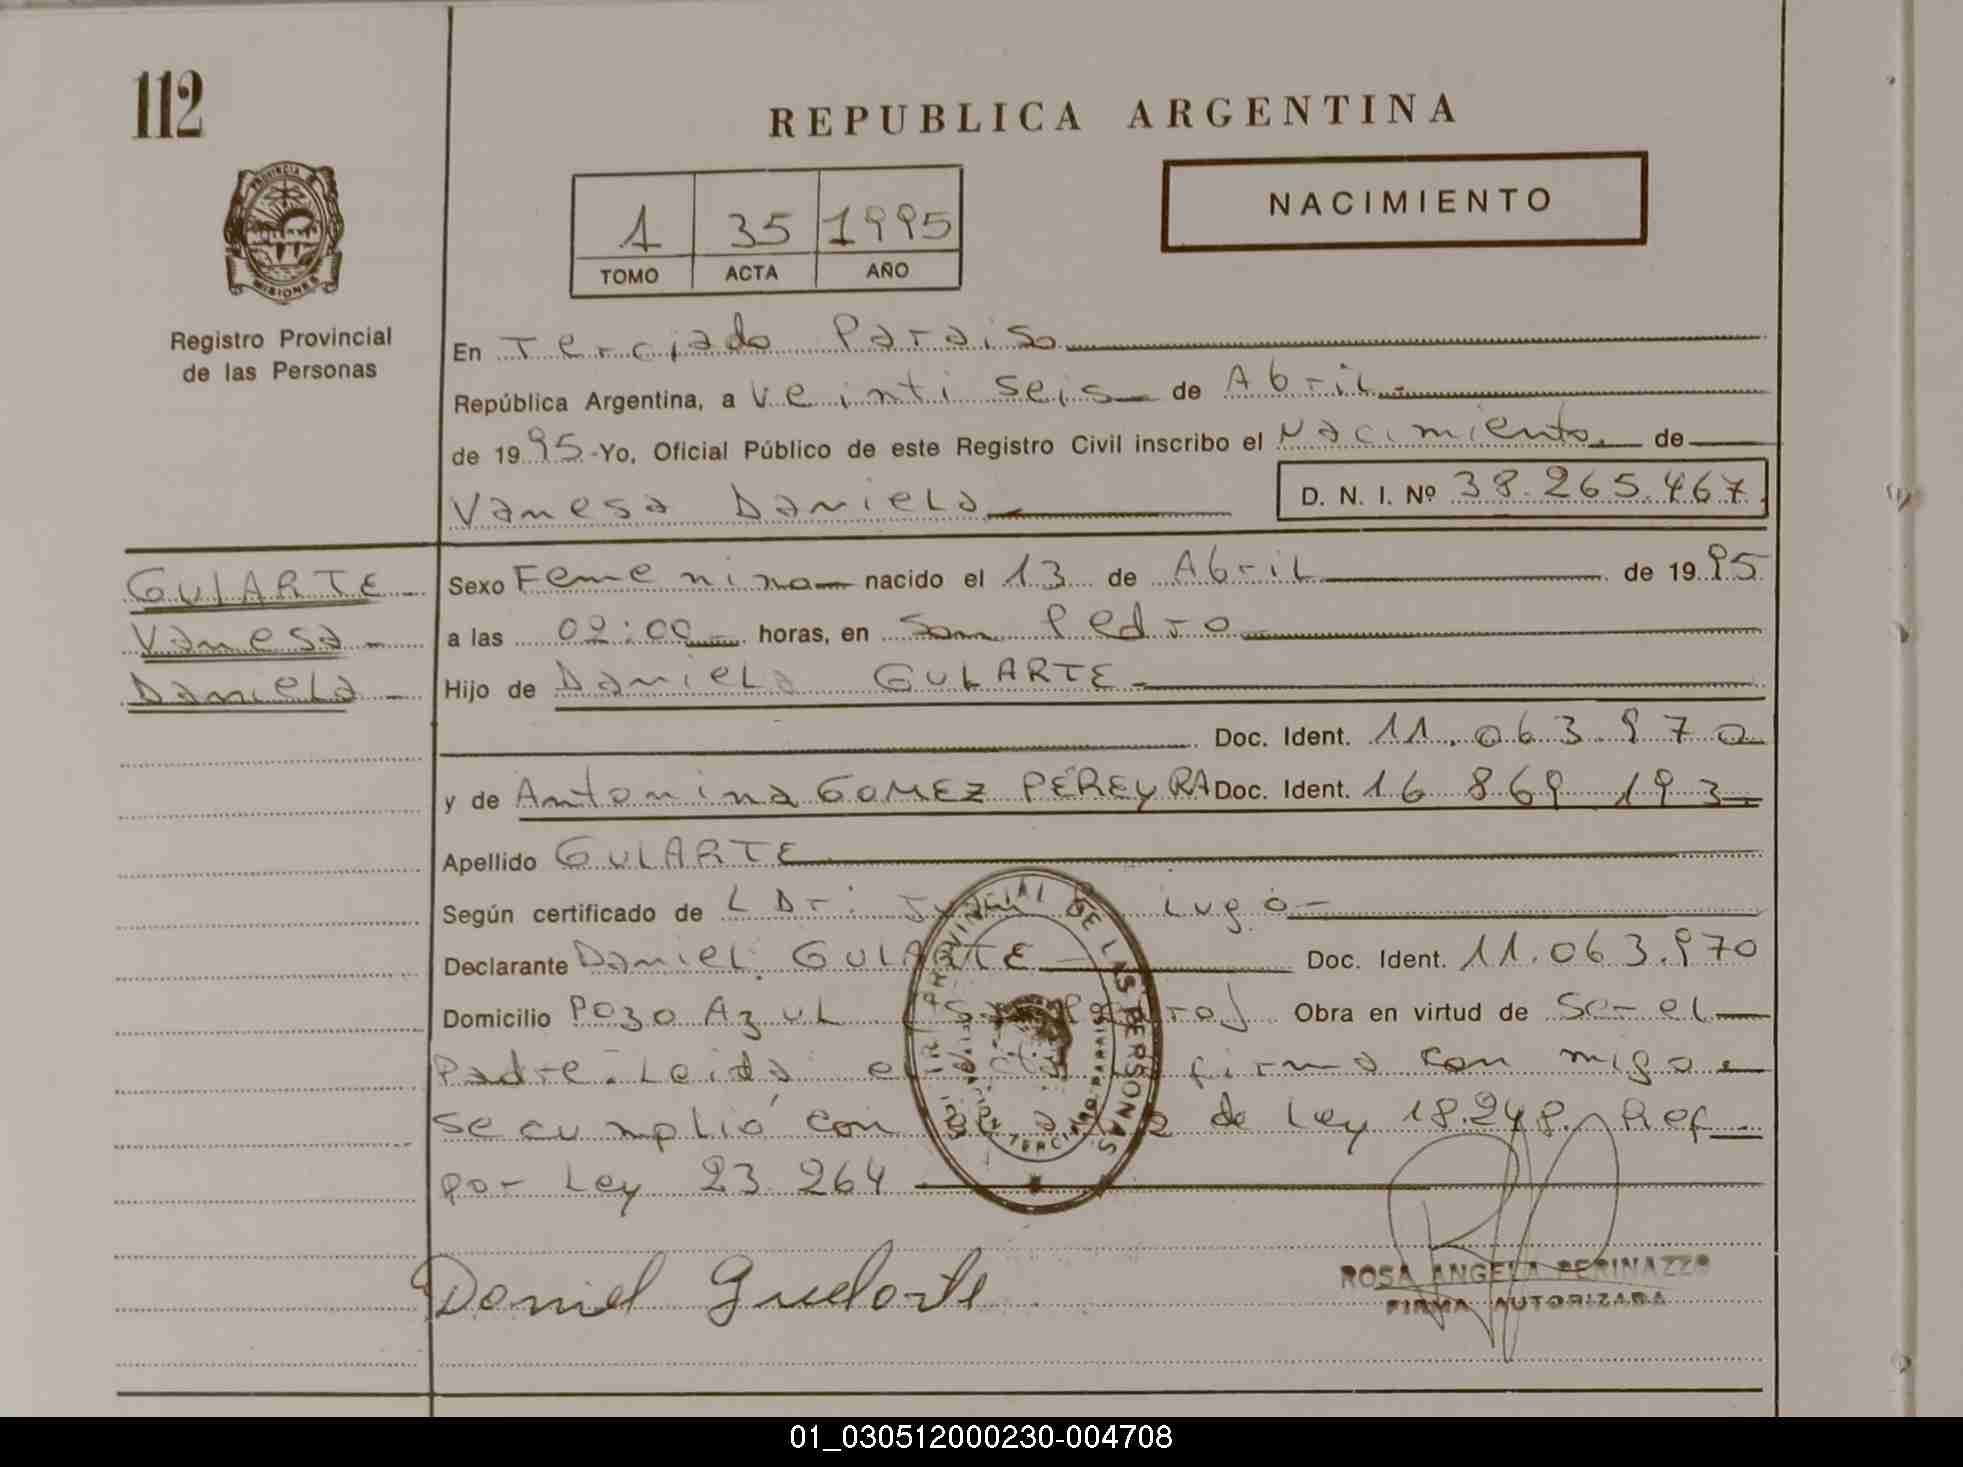 112
REPUBLICA ARGENTINA
PROVINCIA DE
MISIONES
NACIMIENTO
1 35 1995
TOMO ACTA AÑO
Registro Provincial
de las Personas
En Terciado Paraiso
República Argentina, a Veinti seis de Abril
de 1995 Yo, Oficial Público de este Registro Civil inscribo el Nacimiento de
Vanesa Daniela D. N. I. Nº 38.265.467
GULARTE
Vanesa
Daniela
Sexo Femenino nacido el 13 de Abril de 1995
a las 02:00 horas, en San Pedro
Hijo de Daniel GULARTE
Doc. Ident. 11.063.970
y de Antonina GOMEZ PEREYRA Doc. Ident. 16 869 193
Apellido GULARTE
Según certificado de L Dr: Lugo
Declarante Daniel GULARTE Doc. Ident. 11.063.970
Domicilio Pozo Azul Obra en virtud de Ser el
Padre. Leida el firma con migo
se cumplió con de Ley 18.248. Ref
por Ley 23.264
PROVINCIAL DE LAS PERSONAS
TERCIADO PARAISO
Daniel Guelarte
ROSA ANGELA PERINAZZO
FIRMA AUTORIZADA
01_030512000230-004708